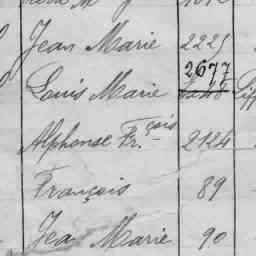 Jean Marie 2225
2677
Louis Marie
Alphonse Fr.çois 2124
François 89
Jean Marie 90